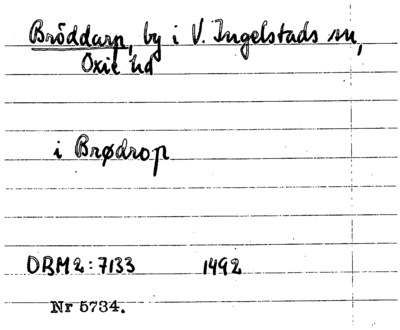 Bröddarp, by i V. Ingelstads sn,
Oxie hd
i Brødrop
DRM 2:7133 1492
Nr 5734.